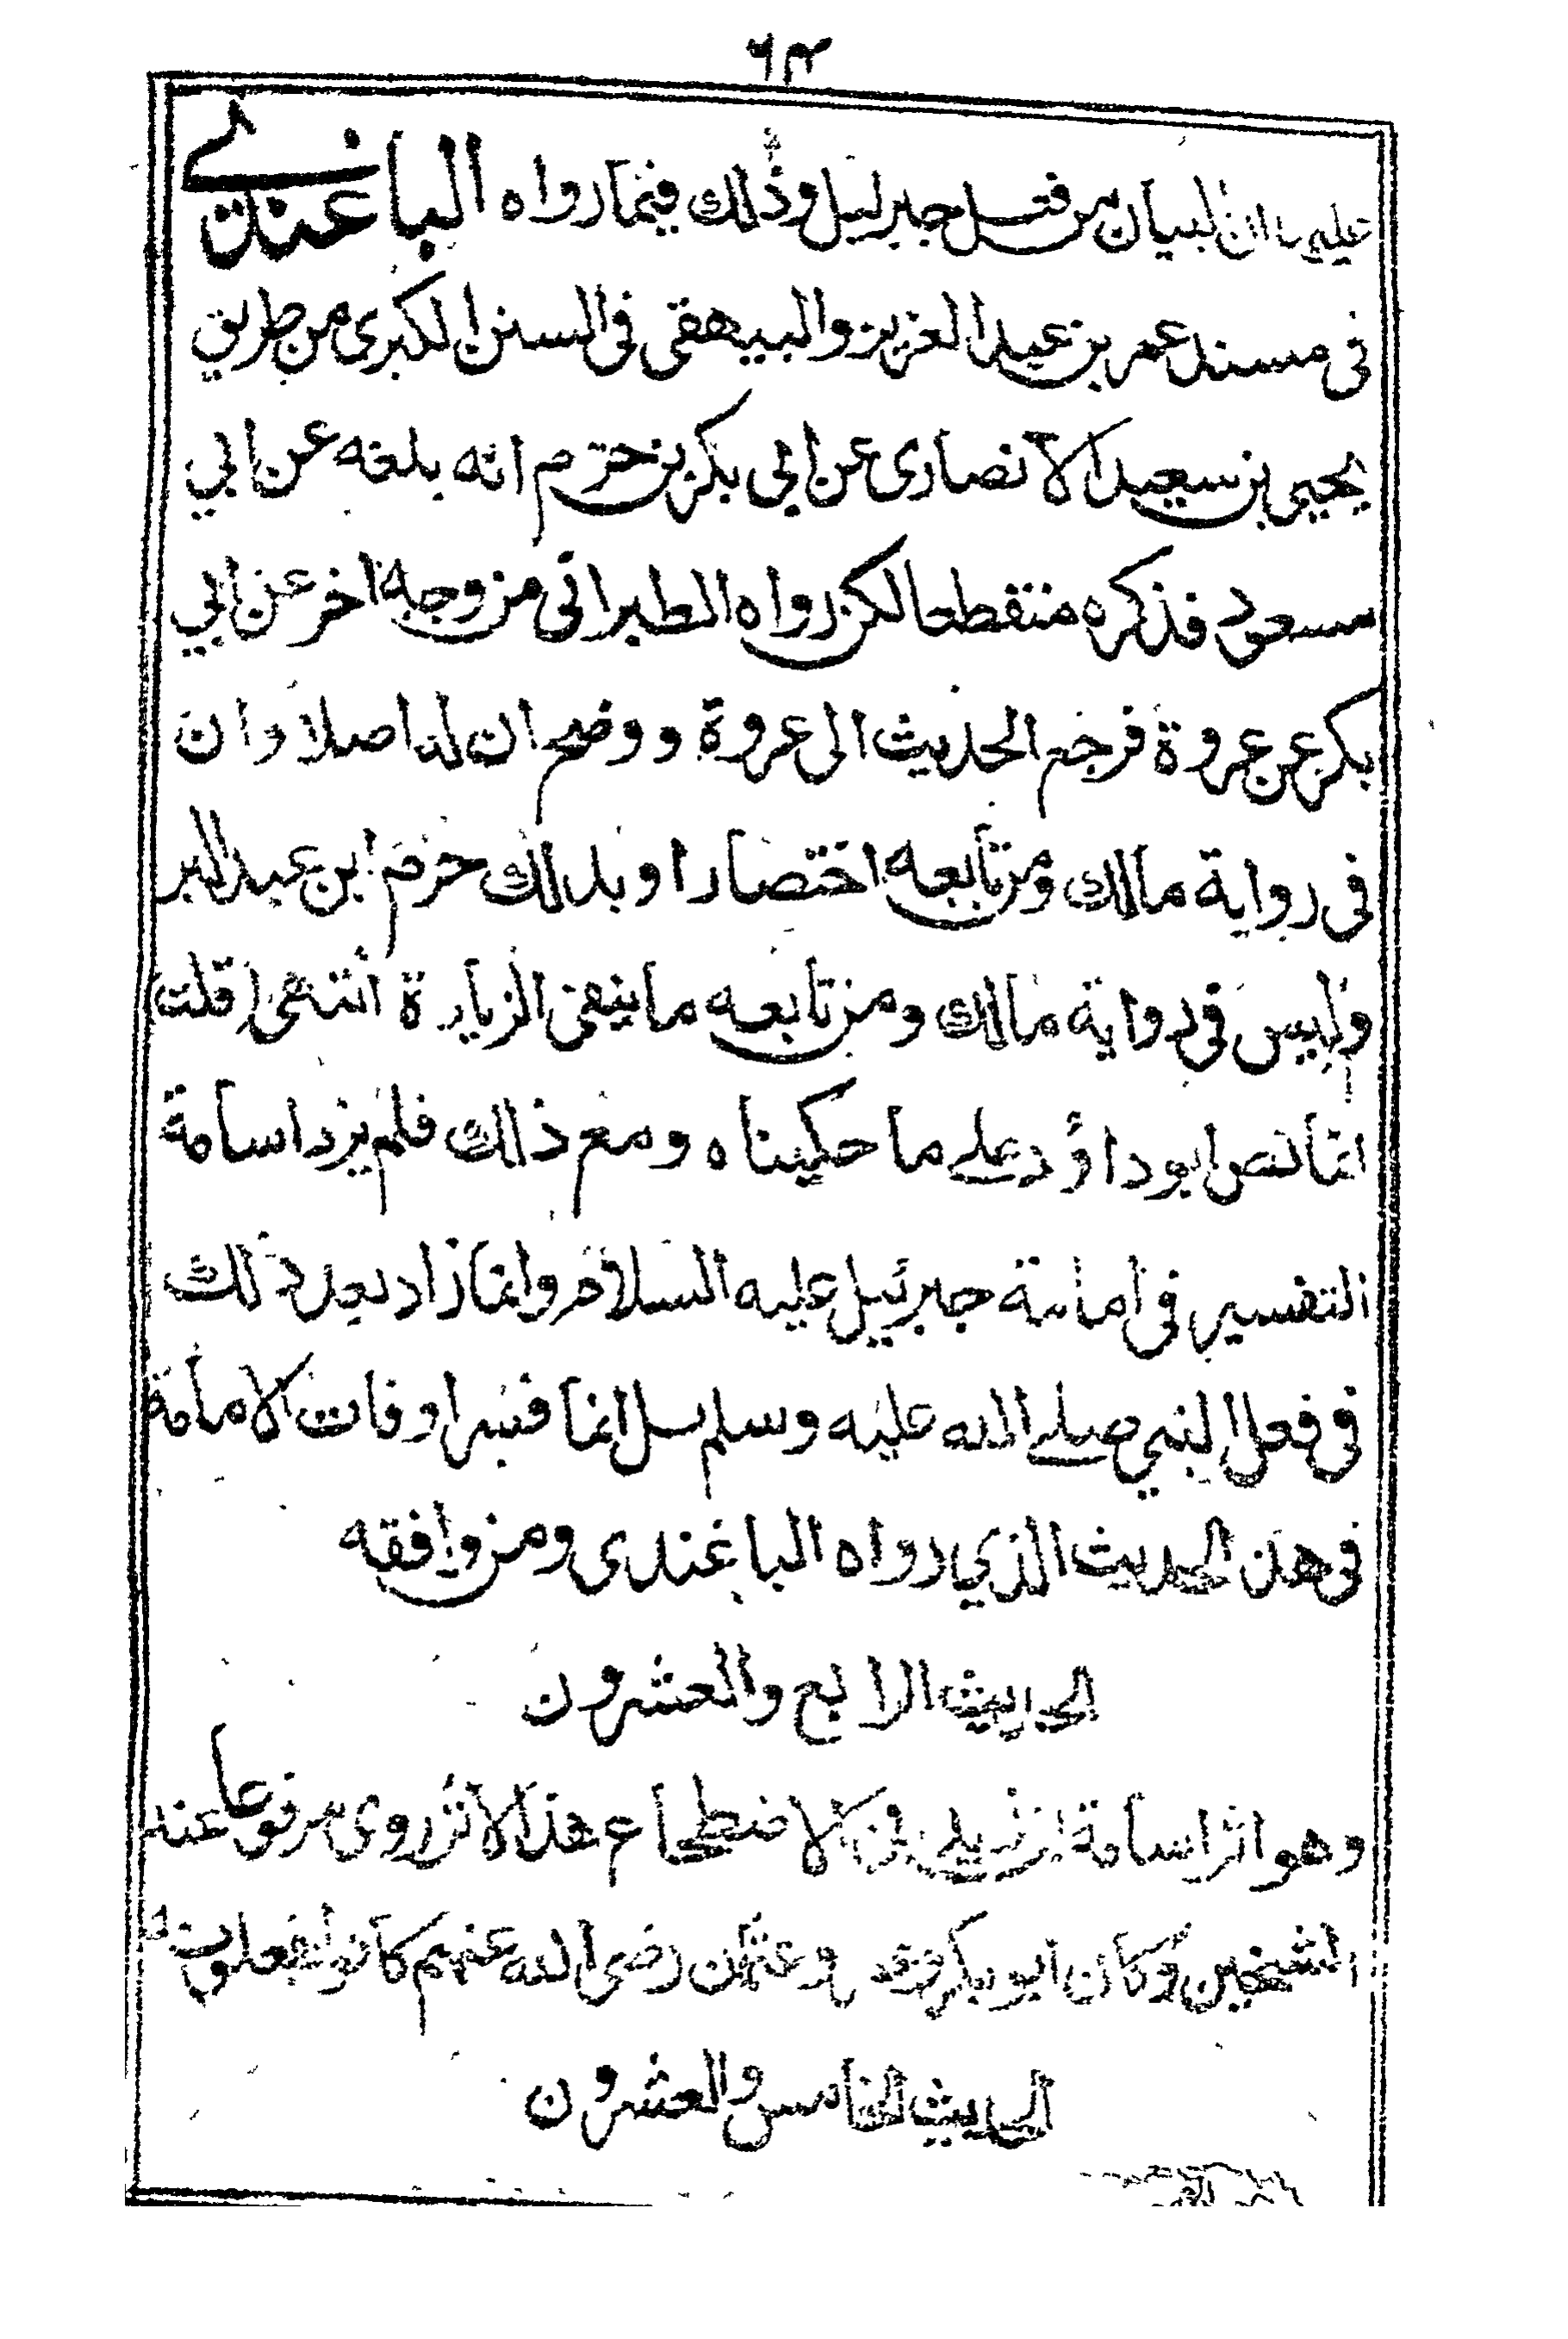 ٦٣
عليه ان البيان من فتل جبرليل وذلك فيما رواه الباغندي
في مسند عمر بن عبد العزيز والبيهقي في السنن الكبرى من طريق
يحيى بن سعيد الانصارى عن ابي بكر بن حزم انه بلغه عن ابي
مسعود فذكره منقطعا لكن رواه الطبراني من وجه اخر عن ابي
بكر عن عروة فرجع الحديث الى عروة ووضح ان له اصلا وان
في رواية مالك ومن تابعه اختصارا وبذلك حزم ابن عبد البر
وليس في رواية مالك ومن تابعه ما ينفى الزيادة انتهى (قلت)
انما نص ابو داؤد على ما حكيناه ومع ذلك فلم يزد اسامة
التفسير في امامة جبرئيل عليه السلام وانما زاد بعد ذلك
في فعل النبي صلى الله عليه وسلم بل انما فسر اوقات الامامة
في هذ الحديث الذي رواه الباغندى ومن وافقه
الحديث الرابع والعشرون
وهو اثر اسامة بن زيد في الاضطجاع هذا الاثر روى مرفوعا عنه
الشيخين وكان ابو بكر وعمر وعثمان رضى الله عنهم كانوا يفعلون
الحديث الخامس والعشرون